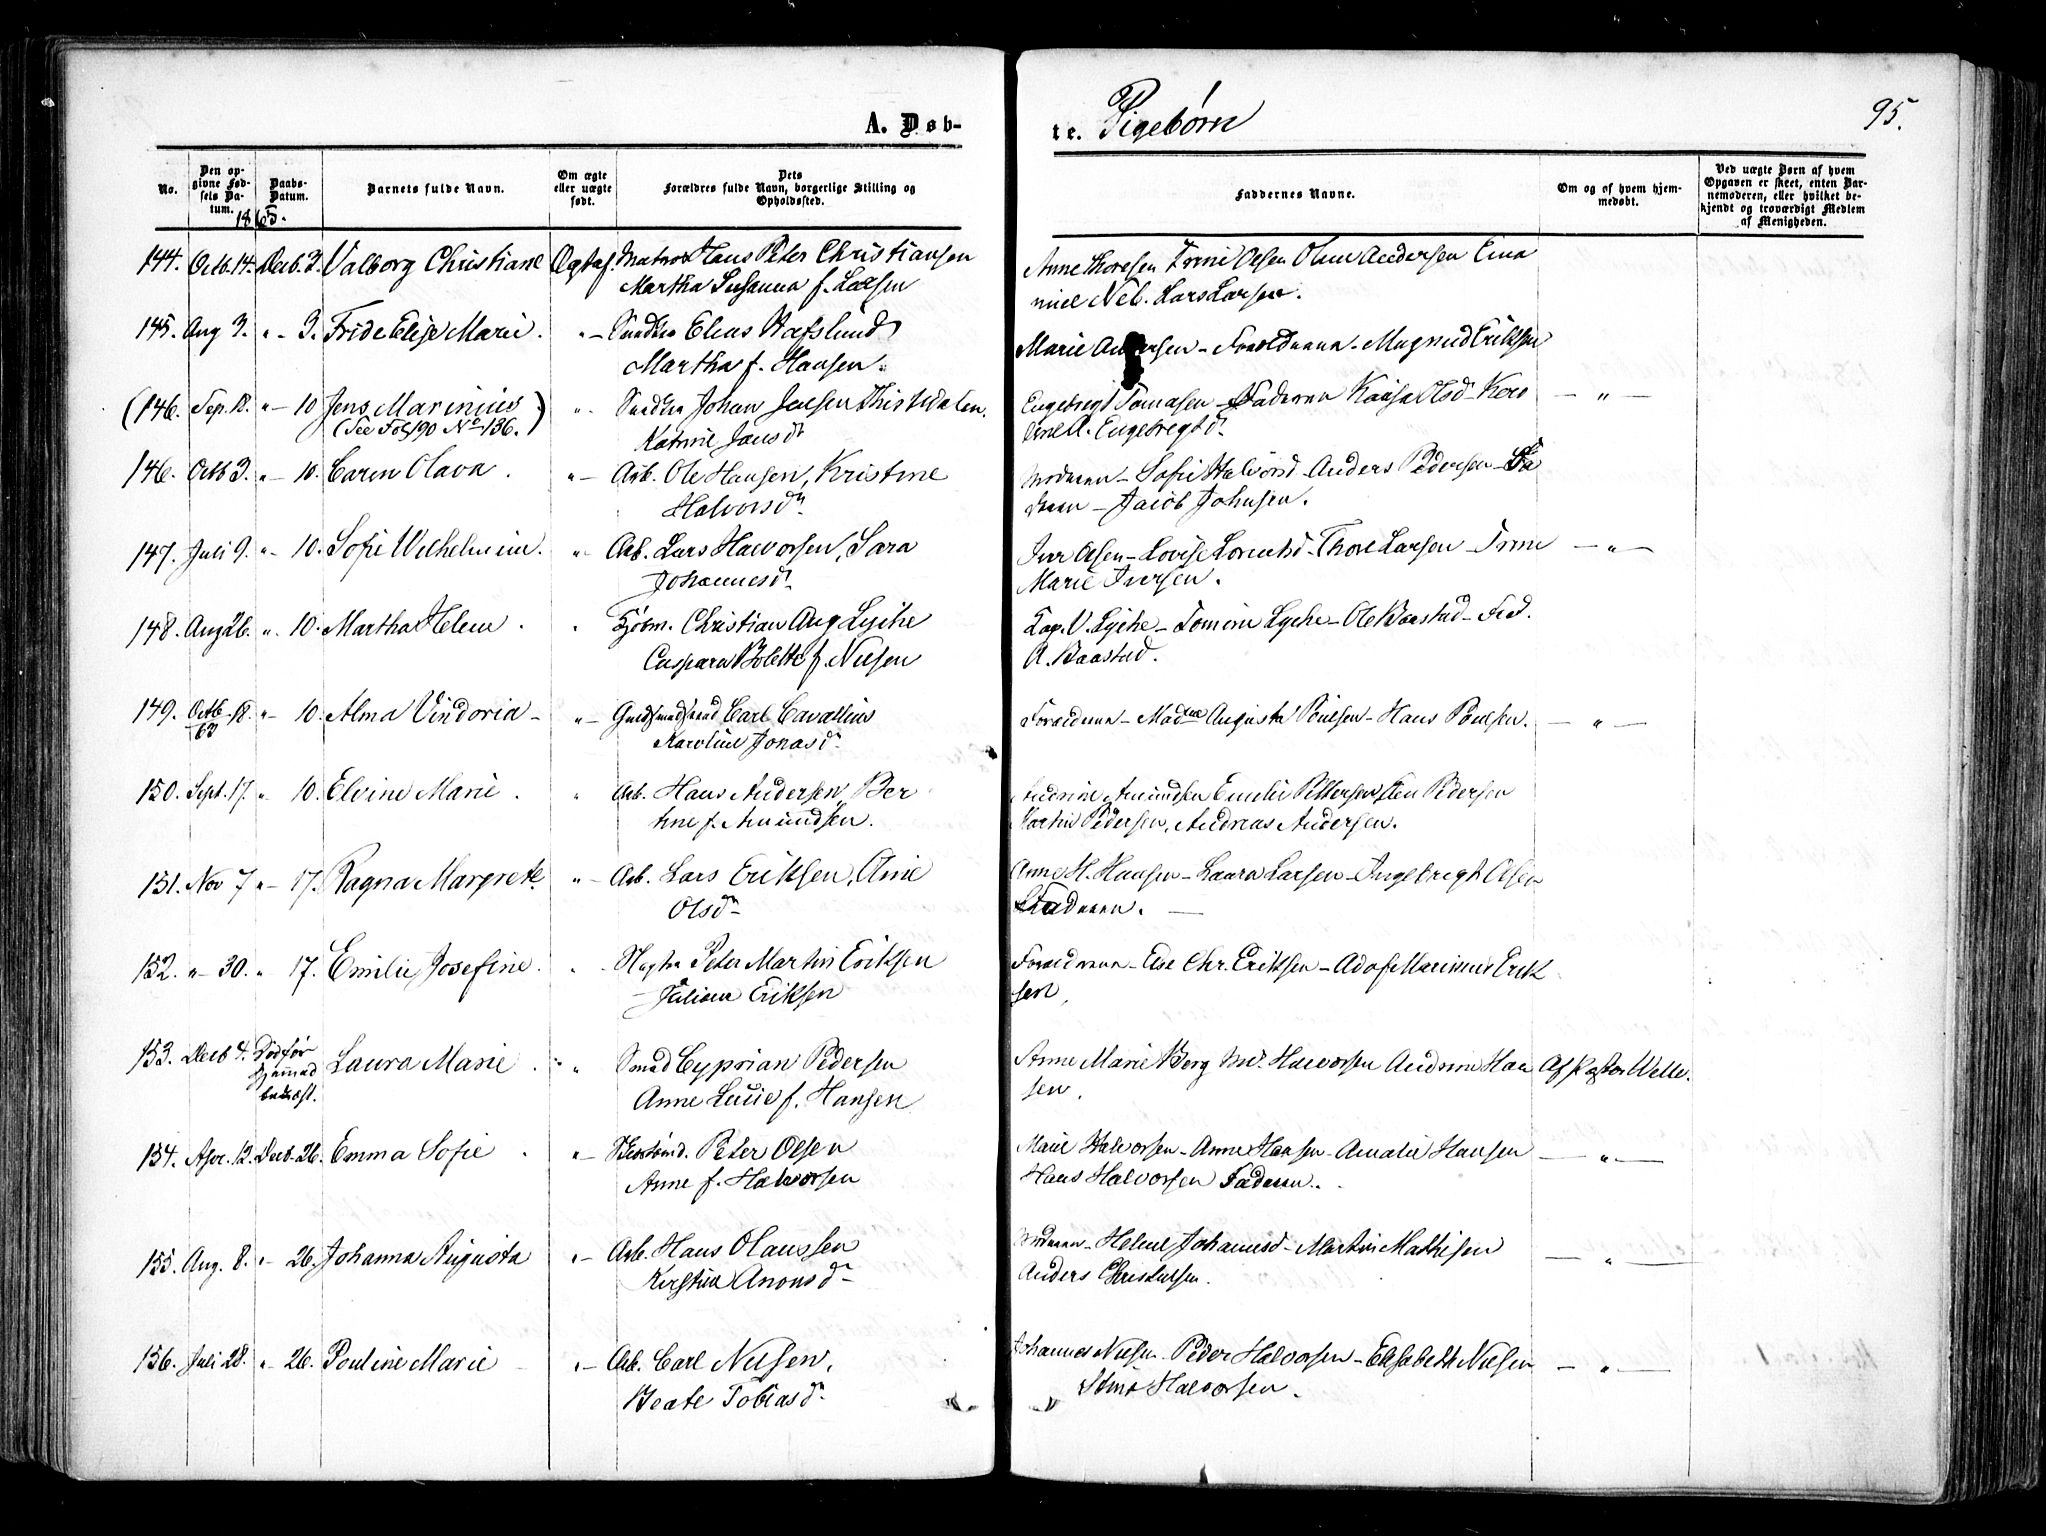 A. Døb-
te. Pigebørn
95.
No.
Den op-
givne Fød-
sels Da-
tum.
Daabs-
Datum.
Barnets fulde Navn.
Om ægte
eller uægte
født.
Dets
Forældres fulde Navn, borgerlige Stilling og
Opholdssted.
Faddernes Navne.
Om og af hvem hjem-
medøbt.
Ved uægte Børn af hvem
Opgaven er skeet, enten Bar-
nemoderen, eller hvilket be-
kjendt og troværdigt Medlem
af Menigheden.
1865.
144. Octb. 14. Decb. 3. Valborg Christiane Hans Peter Christiansen
Martha Susanna f. Larsen
Anne Thoresen Olsen Andersen
Lars Larsen.
145. Aug 3. „- 3. Marie. „- Elias Hafslund
Martha f. Hansen.
Marie - Magnus Eriksen
(146. Sep. 18. „- 10 Jens Marinius) „- Johan Jensen Thistedalen.
(See Fol 90 No 136.)
Engebregt Tomasen - Faderen - „ -
Engebregtsd.
146. Octb 3. „- 10. Caren Olava. „- Arb. Ole Hansen, Kristine
Halvorsd.
Moderen - Sofie Halvorsd - Anders Pedersen - Fa
deren - Jacob Johnsen.
147. Juli 9. „- 10. Sofie Wilhelmine. „- Arb. Lars Halvorsen, Sara
Johannesd.
Iver Olsen - Lovise - Thore Larsen - - „ -
Marie Iversen.
148. Aug 26. „- 10. Martha Helene. „ Kjøbm. Christian Aug Lyche
Caspara Bolette f. Nilsen
Lyche - Lyche - Ole Baastad -
A. Baastad.
149. Octb 18. „- 10. Alma Vindoria - „- Carl Cavallius
63
Karoline Jonasd.
Forældrene - Auguste Poulsen - Hans Poulsen. - „ -
150. Sept. 17. „ 10. Elvine Marie. „ Arb. Hans Andersen, Ber
tine f. Amundsen.
Amundsen Emilie Pettersen Pedersen
Martin Pedersen, Andreas Andersen.
151. Nov 7 „- 17. Ragna Margrete. „- Arb. Lars Eriksen, Anne
Olsd -
Anne H. Hansen - Laura Larsen - Ingebrigt Olsen
Faderen. -
152. „- 30. „ 17. Emilie Josefine. „ Peter Martin Eriksen
Juliane Eriksen
Forældrene - Else Chr. Eriksen - Adof Marinius Erik
sen.
153. Decb 4. Død før Laura Marie. „ Smed Cyprian Pedersen
Hjemmed
Anne Lucie f. Hansen
Anne Marie Berg Halvorsen Han Af Pastor Welle.
sen.
154. Apr. 12. Decb. 26. Emma Sofie. „- Peter Olsen
Anne f. Halvorsen
Marie Halvorsen - Anne Hansen - Amalie Hansen - „ -
Hans Halvorsen Faderen.
155. Aug. 8. „- 26. Johanna Augusta „- Arb. Hans Olaussen
Kirstine Anonsd -
Moderen - Helene Johannesd - Martin Mathisen - „ -
Anders
156. Juli 28. „- 26. Pouline Marie - „- Arb. Carl Nilsen,
Beate Tobiasd.
Johannes Nilsen - Peder Halvorsen - Elisabeth Nilsen - „ -
Halvorsen.